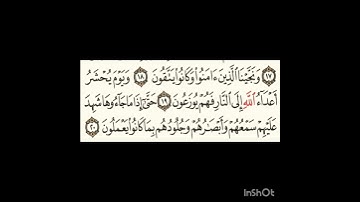 ١٧ وَنَجَّيْنَا ٱلَّذِينَ ءَامَنُوا۟ وَكَانُوا۟ يَتَّقُونَ ١٨ وَيَوْمَ يُحْشَرُ
أَعْدَآءُ ٱللَّهِ إِلَى ٱلنَّارِ فَهُمْ يُوزَعُونَ ١٩ حَتَّىٰٓ إِذَا مَا جَآءُوهَا شَهِدَ
عَلَيْهِمْ سَمْعُهُمْ وَأَبْصَٰرُهُمْ وَجُلُودُهُم بِمَا كَانُوا۟ يَعْمَلُونَ ٢٠
InShOt